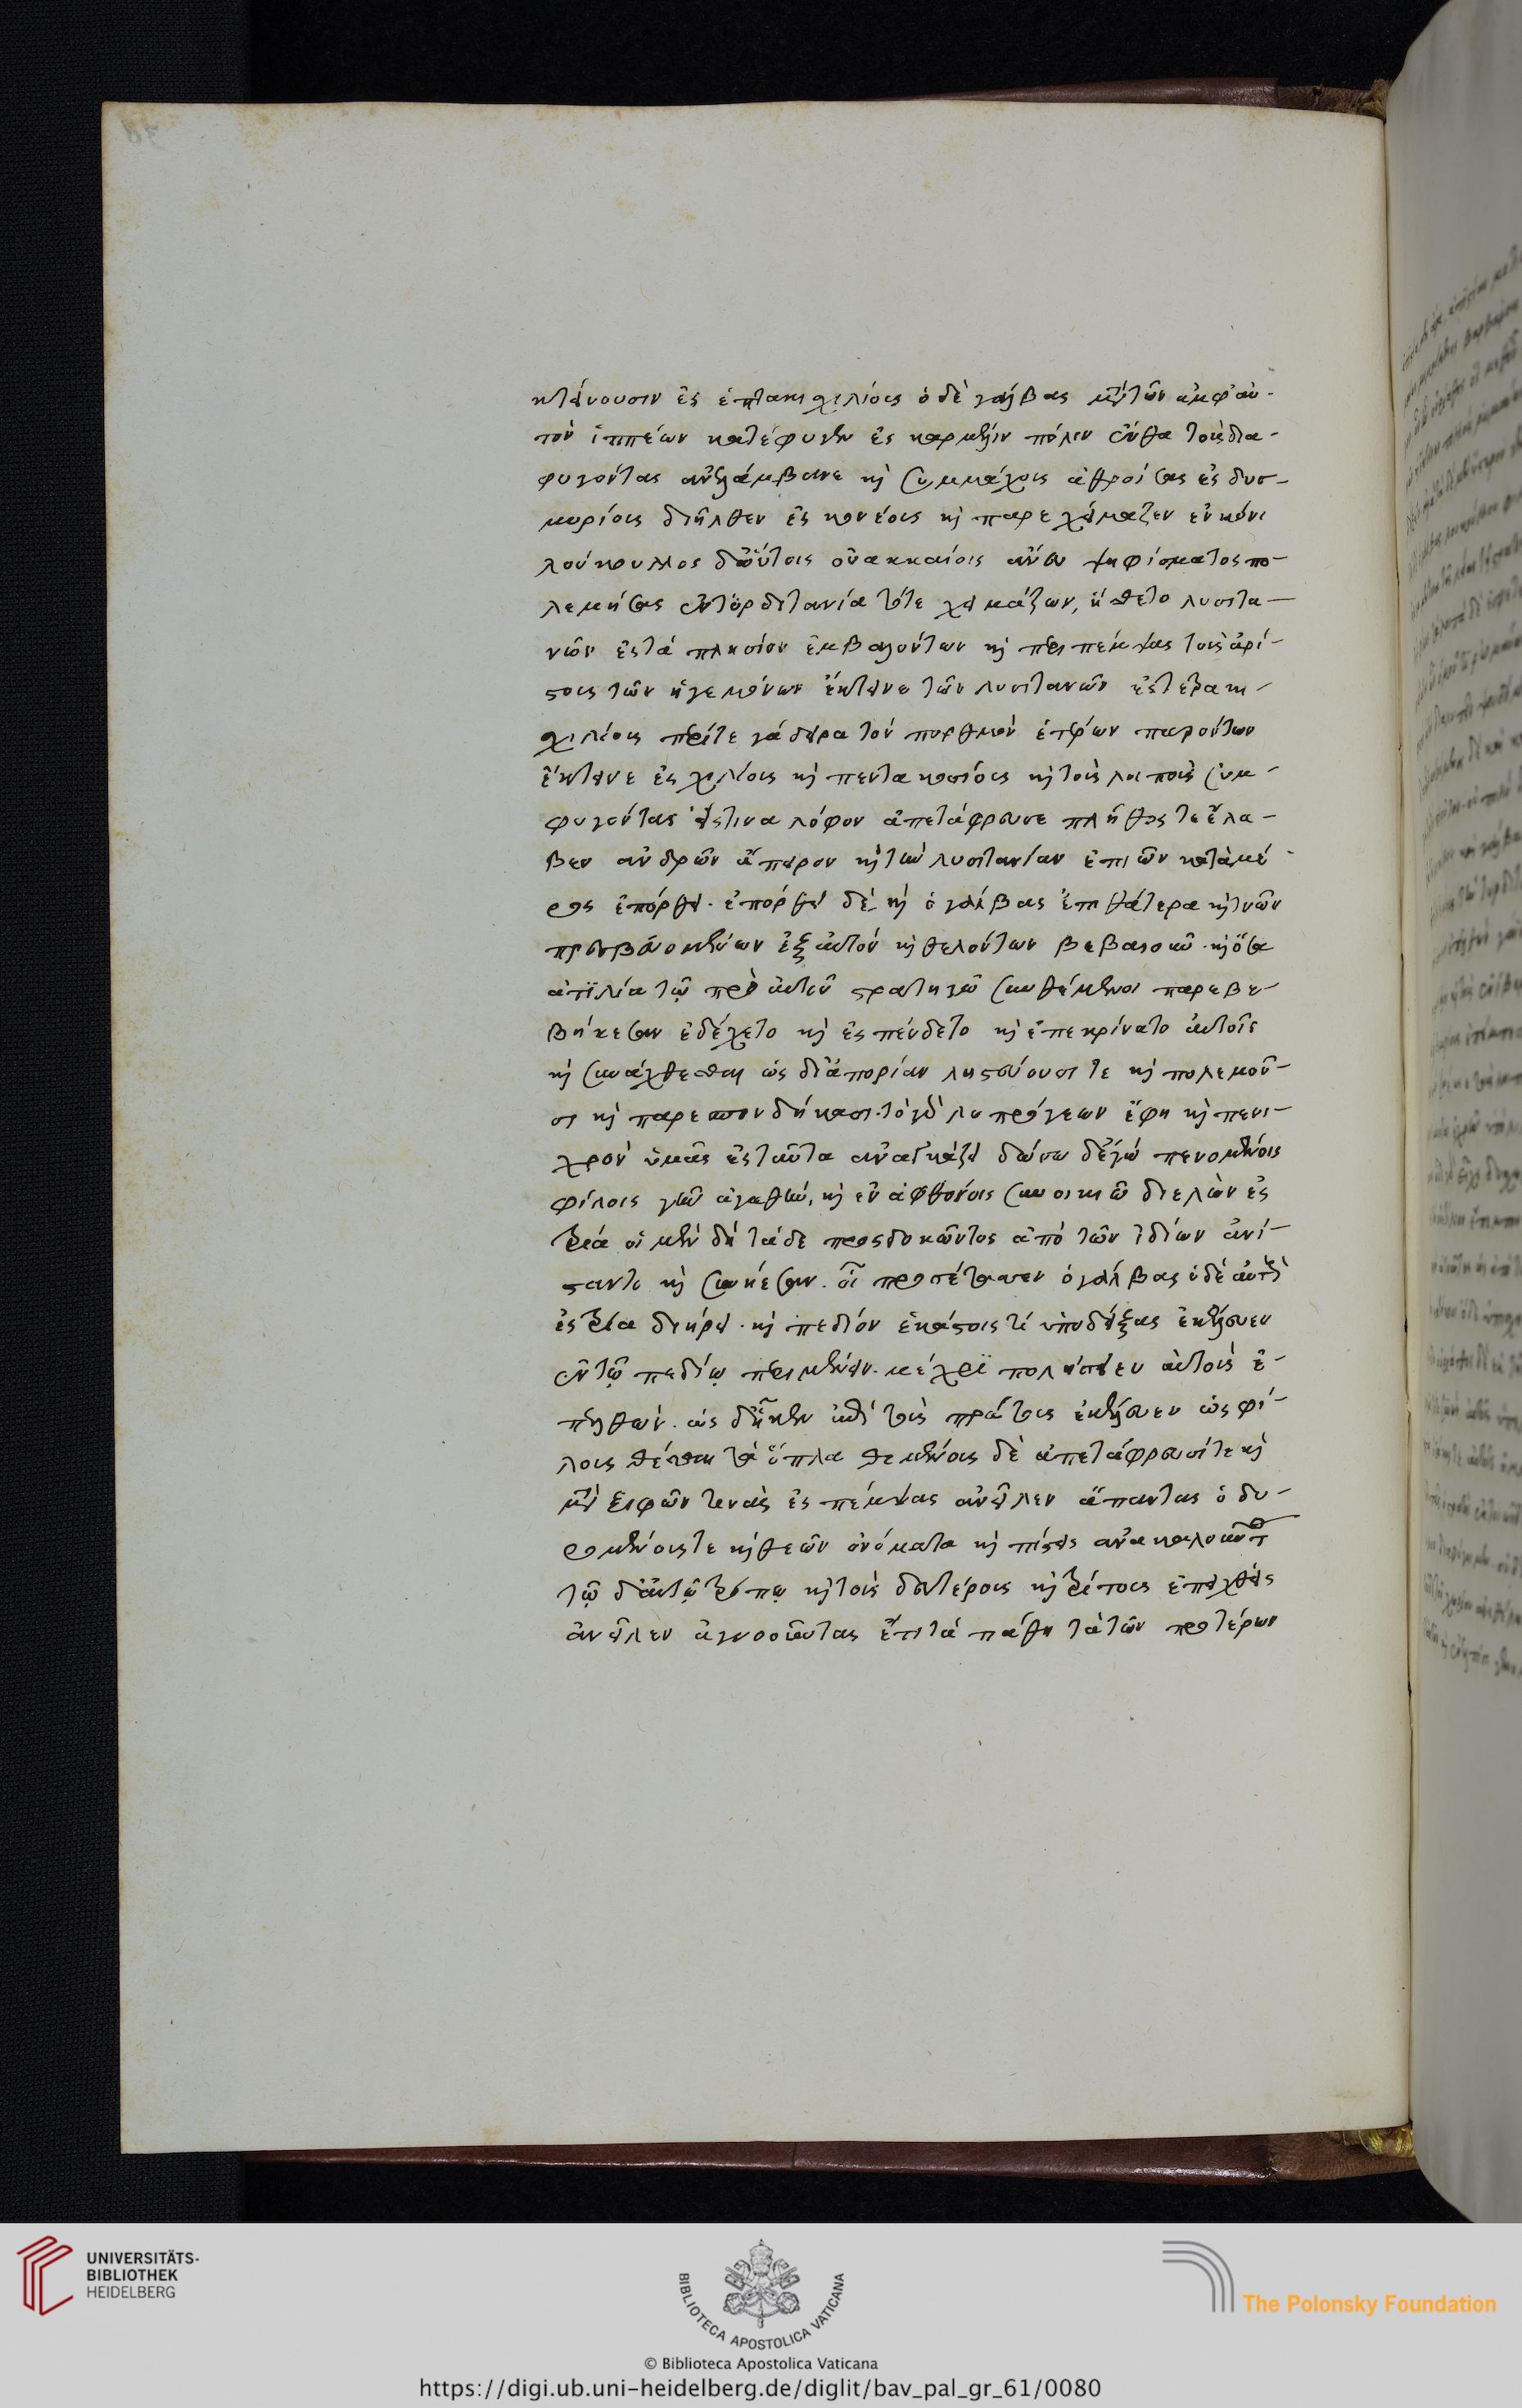 κτείνουσιν ἐς ἑπτακισχιλίους ὁ δὲ γάλβας μετὰ τῶν ἀμφ' αὐ-
τὸν ἱππέων κατέφυγεν ἐς καρμήλην πόλιν ἔνθα τοὺς δια-
φυγόντας ἀνελάμβανε καὶ συμμάχους ἀθροίσας ἐς δυσ-
μυρίους διῆλθεν ἐς κονέους καὶ παρεχείμαζεν ἐν κόνι
λούκουλλος δὲ ὁ τοῖς οὐακκαίοις ἄνευ ψηφίσματος πο-
λεμήσας ἐν τορδιτανία τότε χειμάζων, ᾔσθετο λυσιτα-
νῶν ἐς τὰ πλησίον ἐμβαλόντων καὶ περιπέμψας τοὺς ἀρί-
στους τῶν ἡγεμόνων ἔκτεινε τῶν λυσιτανῶν ἐς τετρακισ-
χιλίους περί τε γάδειρα τὸν πορθμὸν ἑτέρων παρόντων
ἔκτεινε ἐς χιλίους καὶ πεντακοσίους καὶ τοὺς λοιποὺς συμ-
φυγόντας ἔς τινα λόφον ἀπετάφρευσε πλῆθός τε ἔλα-
βεν ἀνδρῶν ἄπειρον καὶ τὴν λυσιτανίαν ἐπιὼν κατὰ μέ-
ρος ἐπόρθει. ἐπόρθει δὲ καὶ ὁ γάλβας ἐπὶ θάτερα καὶ τινῶν
πρεσβευομένων ἐξ αὐτὸν καὶ θελόντων βεβαιοῦν. καὶ ὅσα
ἀτιλία τῷ πρὸ αὐτοῦ στρατηγῷ συνθέμενοι παρεβε-
βήκεσαν ἐδέχετο καὶ ἐσπένδετο καὶ ἐπεκρίνατο αὐτοῖς
καὶ συνάχθεσθαι ὡς δι' ἀπορίαν λῃστεύουσί τε καὶ πολεμοῦ-
σι καὶ παρεσπονδήκασι. τὸ γὰρ λυπρόγεων ἔφη καὶ πενι-
χρὸν ὑμᾶς ἐς ταῦτα ἀναγκάζει δώσω δ' ἐγὼ πενομένοις
φίλοις γῆν ἀγαθήν, καὶ ἐν ἀφθόνοις συνοικιῶ διελὼν ἐς
τρία οἱ μὲν δὴ τάδε προσδοκῶντος ἀπὸ τῶν ἰδίων ἀνί-
σταντο καὶ συνῄεσαν. οἷ προσέτασσεν ὁ γάλβας ὁ δὲ αὐτοὺς
ἐς τρία διῄρει. καὶ πεδίον ἑκάστοις τι ὑποδείξας ἐκέλευεν
ἐν τῷ πεδίῳ περιμένειν. μέχρι πολίσειεν αὐτοὺς ἐ-
πελθών. ὡς δ' ἧκεν ἐπὶ τοὺς πρώτους ἐκέλευεν ὡς φί-
λους θέσθαι τὰ ὅπλα θεμένους δὲ ἀπετάφρευσέ τε καὶ
μετὰ ξιφῶν τινὰς ἐσπέμψας ἀνεῖλεν ἅπαντας ὀδυ-
ρομένους τε καὶ θεῶν ὀνόματα καὶ πίστεις ἀνακαλοῦντας
τῷ δ' αὐτῷ τρόπῳ καὶ τοὺς δευτέρους καὶ τρίτους ἐπειχθεὶς
ἀνεῖλεν ἀγνοοῦντας ἔτι τὰ πάθη τὰ τῶν προτέρων
UNIVERSITÄTS-
BIBLIOTHEK
HEIDELBERG
BIBLIOTECA APOSTOLICA VATICANA
© Biblioteca Apostolica Vaticana
The Polonsky Foundation
https://digi.ub.uni-heidelberg.de/diglit/bav_pal_gr_61/0080